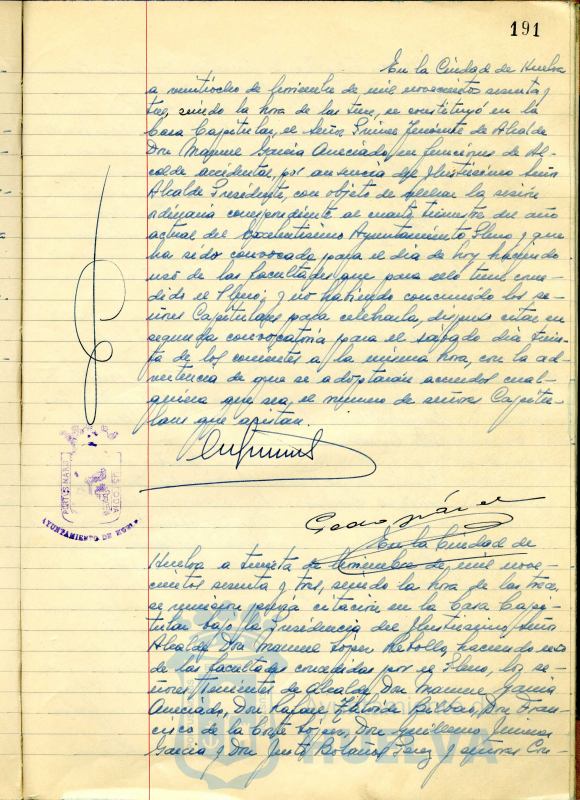 191
En la Ciudad de Huelva
a veintiocho de noviembre de mil novecientos sesenta y
tres, siendo la hora de las trece, se constituyó en la
Casa Capitular, el Señor Primer Teniente de Alcalde
Don Manuel García Aneciado, en funciones de Al-
calde accidental, por ausencia del Ilustrísimo Señor
Alcalde Presidente, con objeto de celebrar la sesión
ordinaria correspondiente al cuarto trimestre del año
actual del Excelentísimo Ayuntamiento Pleno y que
ha sido convocada para el día de hoy, haciendo
uso de las facultades que para ello tiene conce-
dido el Pleno, y no habiendo concurrido los se-
ñores Capitulares para celebrarla, dispuso citar en
segunda convocatoria para el sábado día trein-
ta de los corrientes a la misma hora, con la ad-
vertencia de que se adoptarán acuerdos cual-
quiera que sea, el número de señores Capitu-
lares que asistan.
AYUNTAMIENTO DE HUELVA
En la Ciudad de
Huelva a treinta de noviembre de mil nove-
cientos sesenta y tres, siendo la hora de las trece,
se reunieron previa citación en la Casa Capi-
tular bajo la Presidencia del Ilustrísimo Señor
Alcalde Don Manuel López Rebollo, haciendo uso
de las facultades concedidas por el Pleno, los se-
ñores Tenientes de Alcalde, Don Manuel García
Aneciado, Don Rafael Bilbao, Don Fran-
cisco de la Corte López, Don Guillermo Jiménez
García y Don Justo Bolaños Pérez y señores Con-
HUELVA